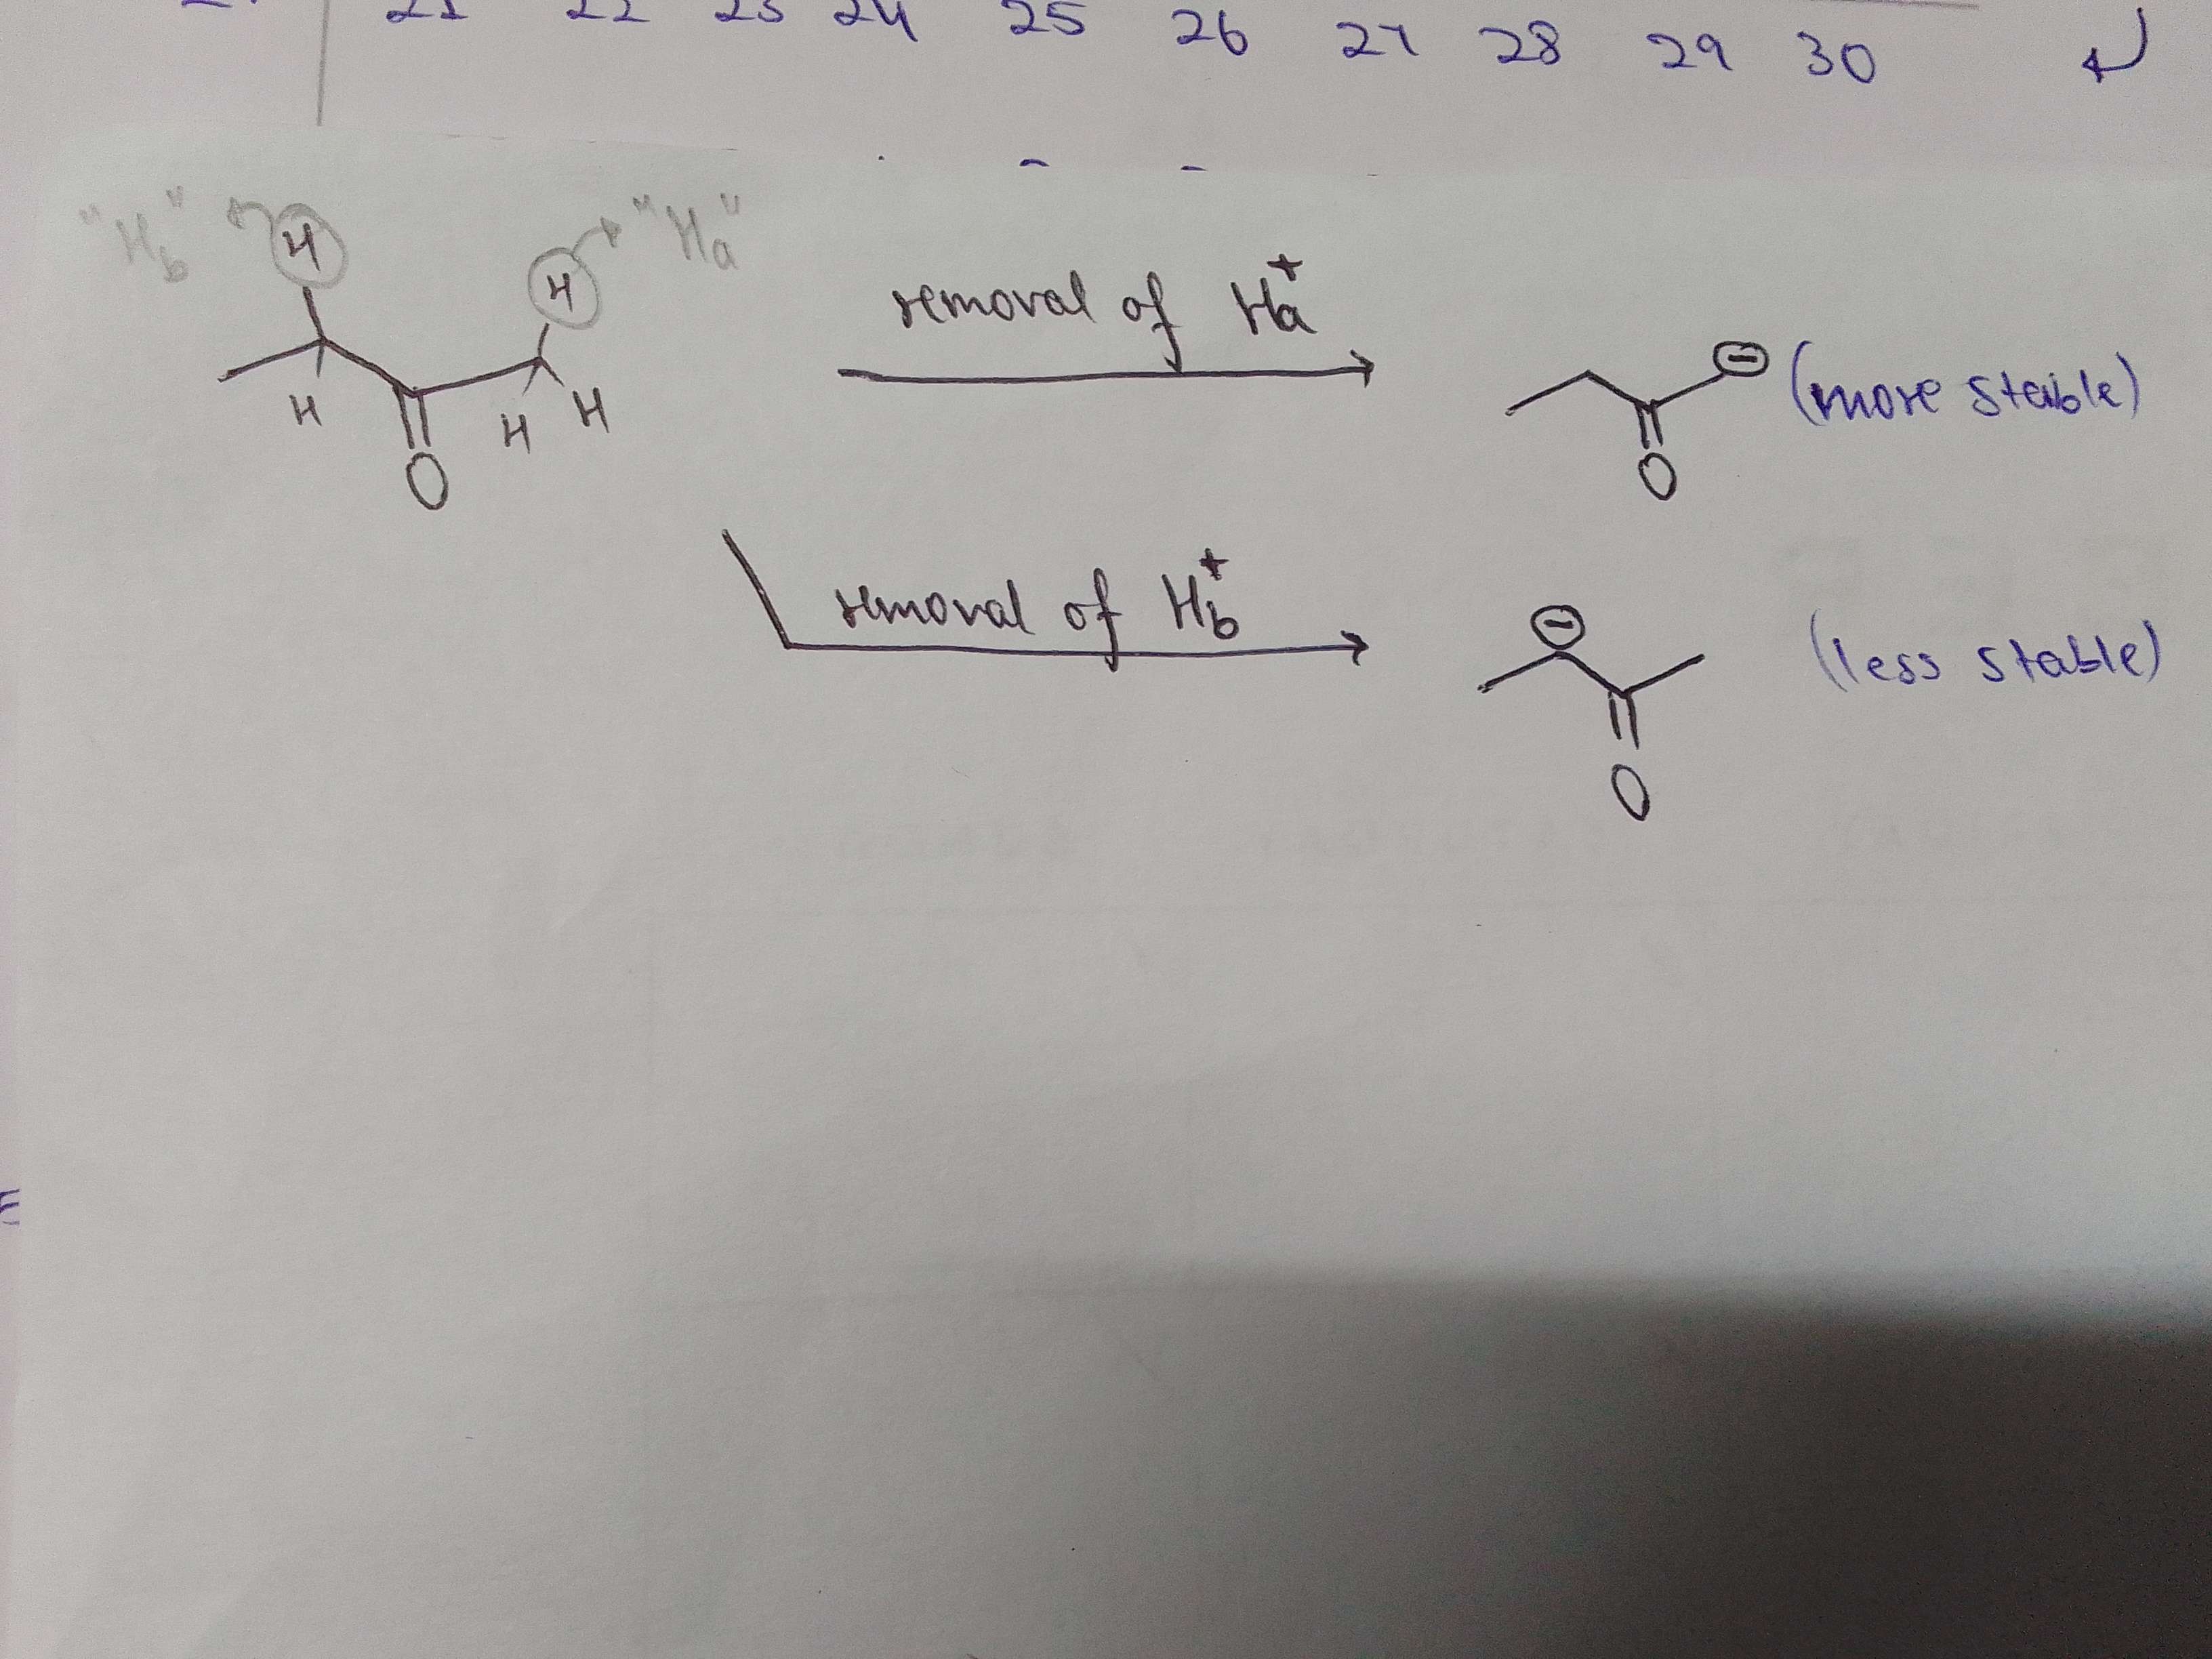 21 22 23 24 25 26 27 28 29 30
"Hb" H H "Ha"
H H H
O
removal of Ha+
⊖ (more stable)
O
removal of Hb+
⊖ (less stable)
O